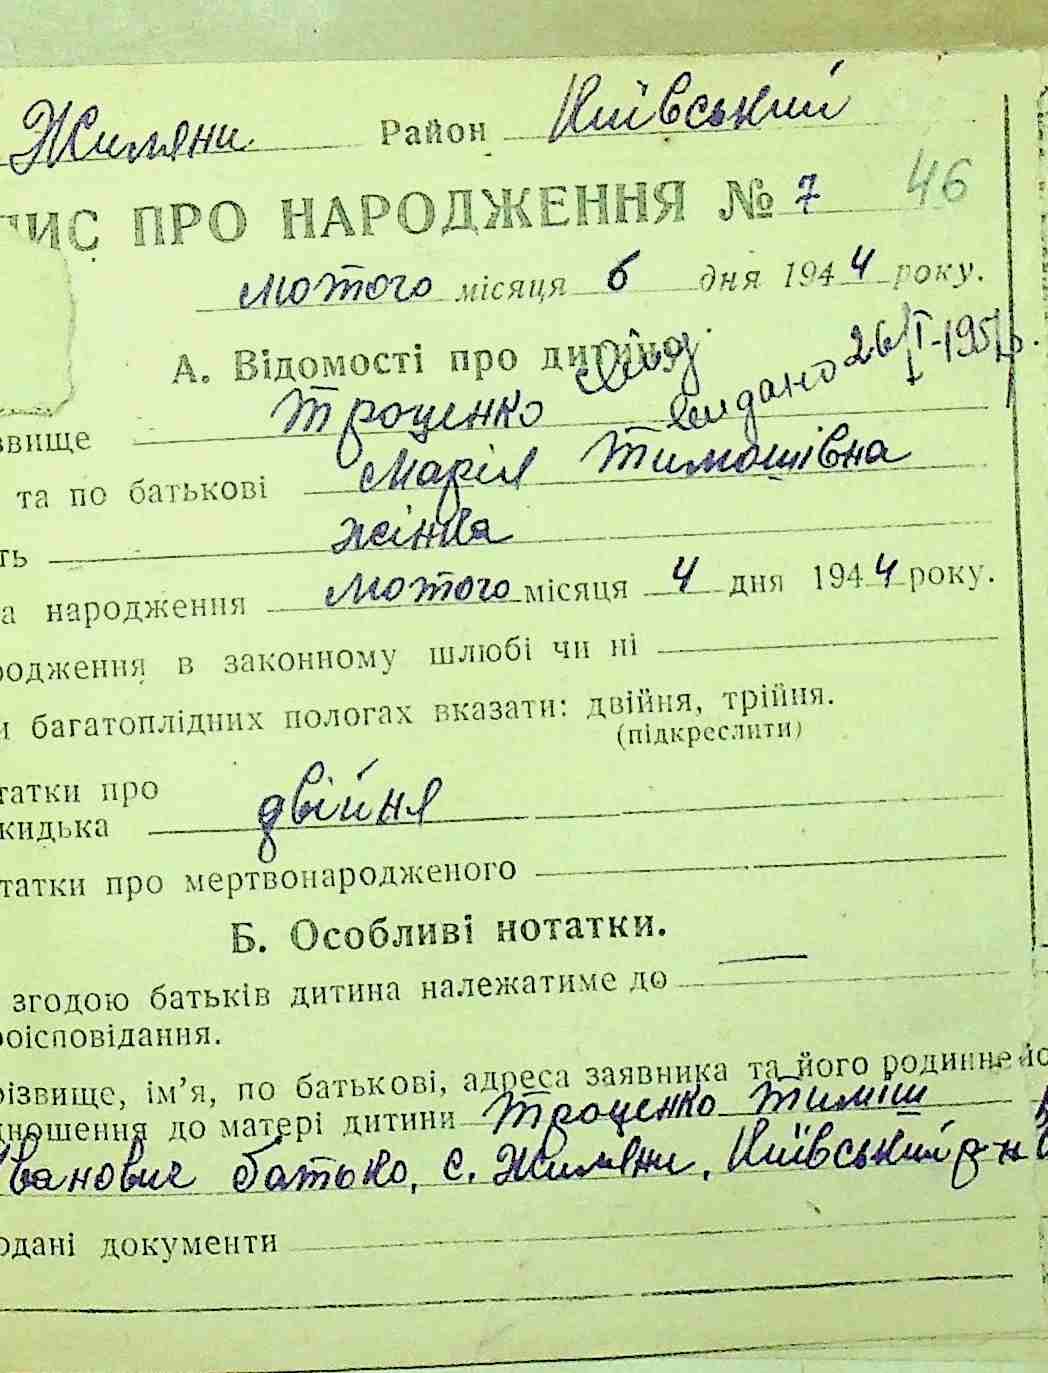 Жиляни Район Київський
ПИС ПРО НАРОДЖЕННЯ № 7 46
лютого місяця 6 дня 1944 року.
А. Відомості про дитину
видано 26/I-1957р.
звище Троценко
та по батькові Марія Тимошівна
ть жінка
а народження лютого місяця 4 дня 1944 року.
родження в законному шлюбі чи ні
и багатоплідних пологах вказати: двійня, трійня.
(підкреслити)
татки про
кидька двійня
татки про мертвонародженого
Б. Особливі нотатки.
згодою батьків дитина належатиме до
роісповідання.
різвище, ім'я, по батькові, адреса заявника та його родинне
дношення до матері дитини Троценко Тиміш
Іванович батько, с. Жиляни, Київський р-н
одані документи